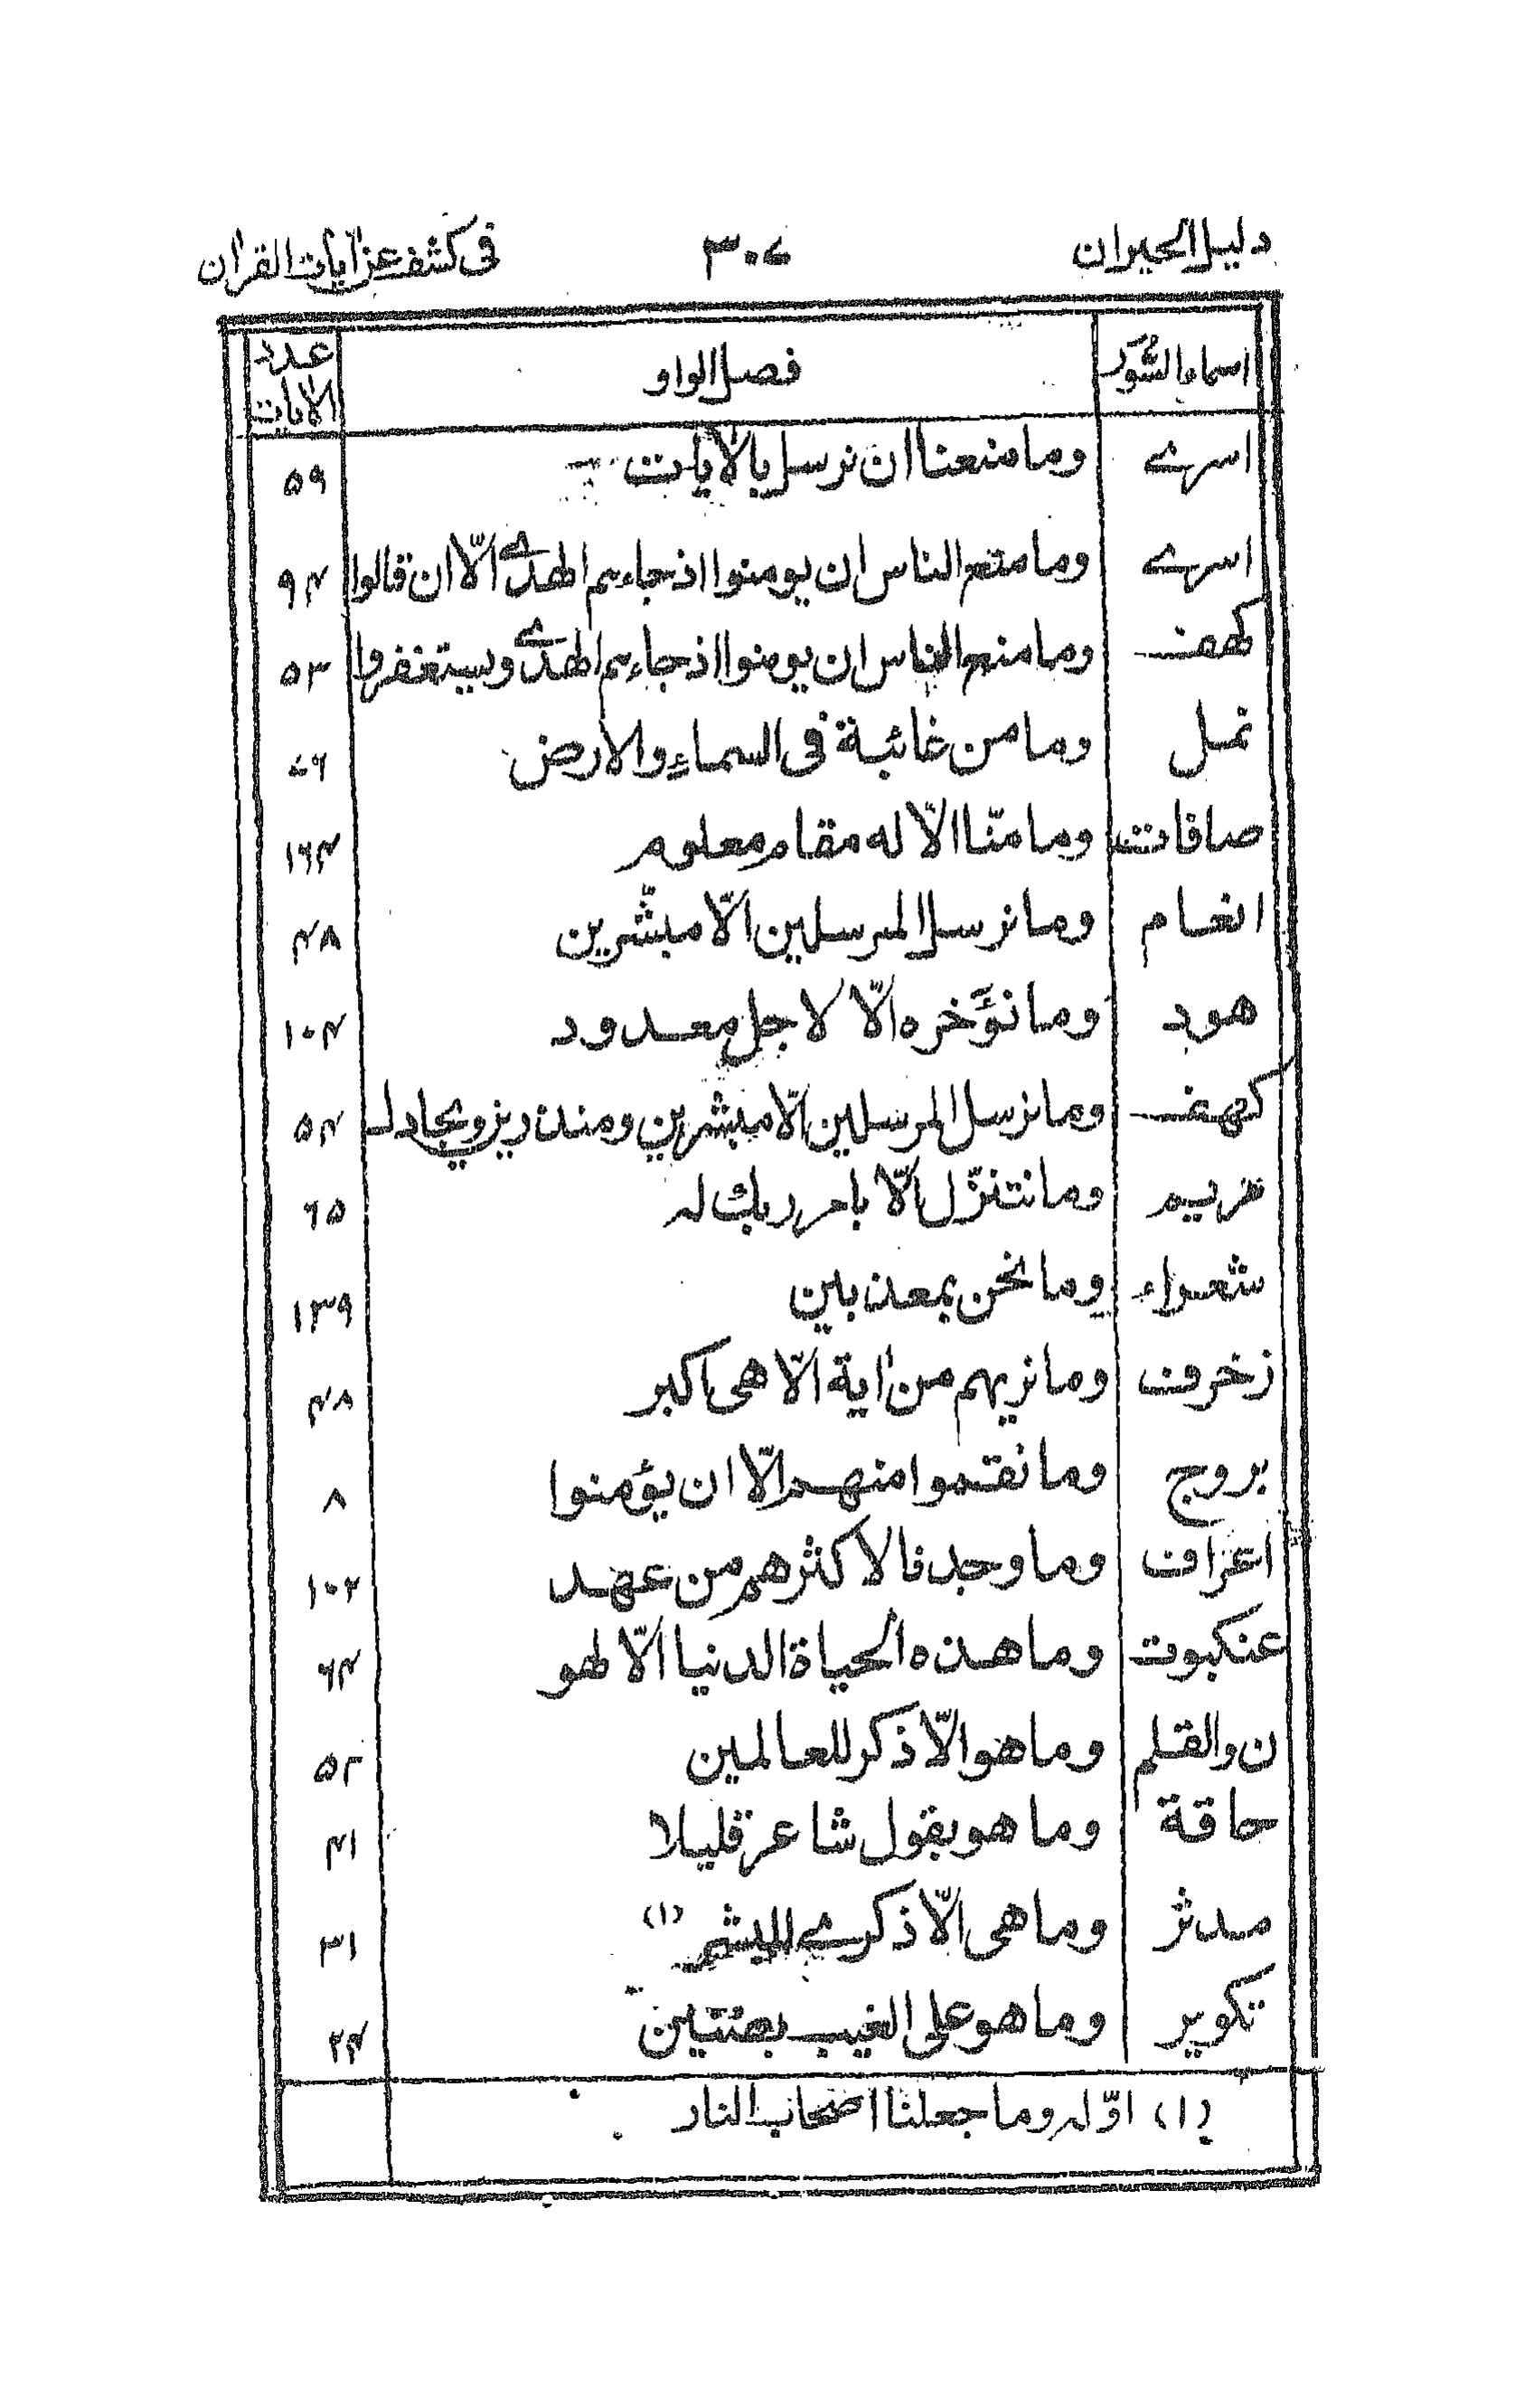 دليل الحيران ٣٠٧ فى كشف عن اٰيات القراٰن
اسماء السّور فصل الواو عدد الاٰيات
اسرے وما منعنا ان نرسل بالاٰيات ٥٩
اسرے وما منع الناس ان يومنوا اذ جاءهم الهدٰے الّا ان قالوا ٩٤
كهف وما منع الناس ان يومنوا اذ جاءهم الهدٰے ويستغفروا ٥٣
نمل وما من غائبة فى السماءِ والارض ٧٦
صافات وما منّا الّا له مقام معلوم ١٦٤
انعام وما نرسل المرسلين الّا مبشّرين ٤٨
هود وما نؤَخره الّا لاجل معدود ١٠٤
كهف وما نرسل المرسلين الّا مبشرين ومنذرين ويجادل ٥٤
مريم وما نتنزّل الّا بامر ربك له ٦٥
شعراء وما نحن بمعذبين ١٣٩
زخرف وما نريهم من اٰية الّا هى اكبر ٤٨
بروج وما نقموا منهم الّا ان يؤمنوا ٨
اعراف وما وجدنا لاكثرهم من عهد ١٠٢
عنكبوت وما هذه الحياة الدنيا الّا لهو ٦٤
ن والقلم وما هو الّا ذكر للعالمين ٥٢
حاقة وما هو بقول شاعر قليلا ٤١
مدثر وما هى الّا ذكرے للبشر (١) ٣١
تكوير وما هو على الغيب بضنين ٢٤
(١) اوّله وما جعلنا اصحاب النار